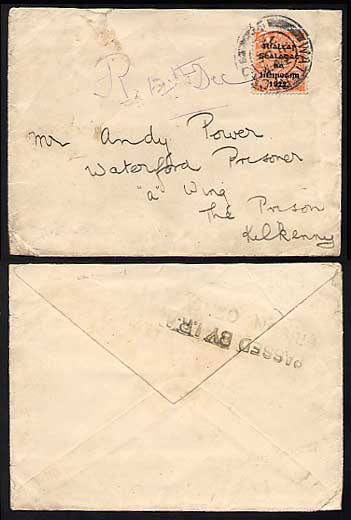 R. 15th Dec
RIALTAS
SEALADAC
NA
hÉIREANN
1922
WAT
Mr Andy Power
Waterford Prisoner
"a" Wing
The Prison
Kilkenny
PASSED BY I.R.A